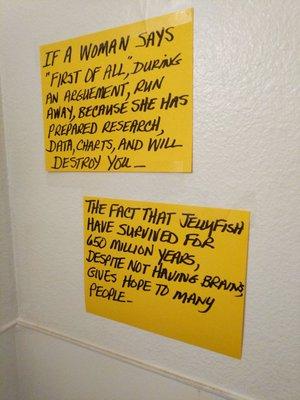 IF A WOMAN SAYS
"FIRST OF ALL", DURING
AN ARGUEMENT, RUN
AWAY, BECAUSE SHE HAS
PREPARED RESEARCH,
DATA, CHARTS, AND WILL
DESTROY YOU_
THE FACT THAT JELLYFISH
HAVE SURVIVED FOR
650 MILLION YEARS,
DESPITE NOT HAVING BRAINS,
GIVES HOPE TO MANY
PEOPLE_